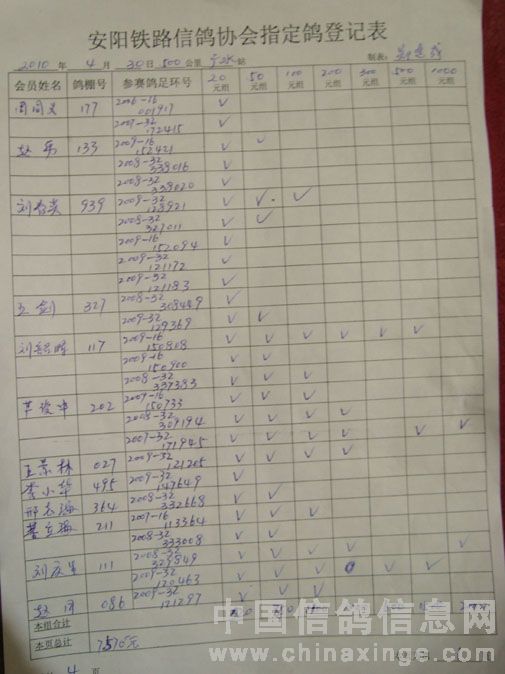 安阳铁路信鸽协会指定鸽登记表
2010 年 4 月 30 日 500 公里 站 制表:
会员姓名 鸽棚号 参赛鸽足环号 20元组 50元组 100元组 200元组 300元组 500元组 1000元组
177 2006-16 001917 ✓
2009-32 172415 ✓
赵 133 2009-16 152421 ✓ ✓
2008-32 338016 ✓
2008-32 338020 ✓
刘 939 2009-32 128921 ✓ ✓ ✓
2008-32 327011 ✓ ✓
2009-16 152094 ✓
2009-32 121172 ✓
2009-32 121183 ✓
王剑 327 2008-32 308449 ✓
2009-32 129369 ✓ ✓
刘 117 2009-16 150808 ✓ ✓ ✓ ✓ ✓ ✓
2009-16 150900 ✓ ✓
2008-32 337383 ✓ ✓ ✓
202 2009-16 150733 ✓ ✓
2008-32 309194 ✓ ✓ ✓ ✓
2009-32 171945 ✓ ✓ ✓ ✓ ✓ ✓
王景林 027 2009-32 121205 ✓ ✓ ✓ ✓
李小华 495 2009-32 147649 ✓
邢志海 364 2008-32 332668 ✓ ✓
211 2009-16 113364 ✓ ✓ ✓
2008-32 333008 ✓ ✓
刘庆生 111 2008-32 323849 ✓ ✓ ✓ ✓ ✓
2009-32 120463 ✓ ✓ ✓ ✓ ✓
赵 086 2009-32 121297 ✓ ✓ ✓
本组合计
本页总计 7570元
4 页
中国信鸽信息网
www.chinaxinge.com